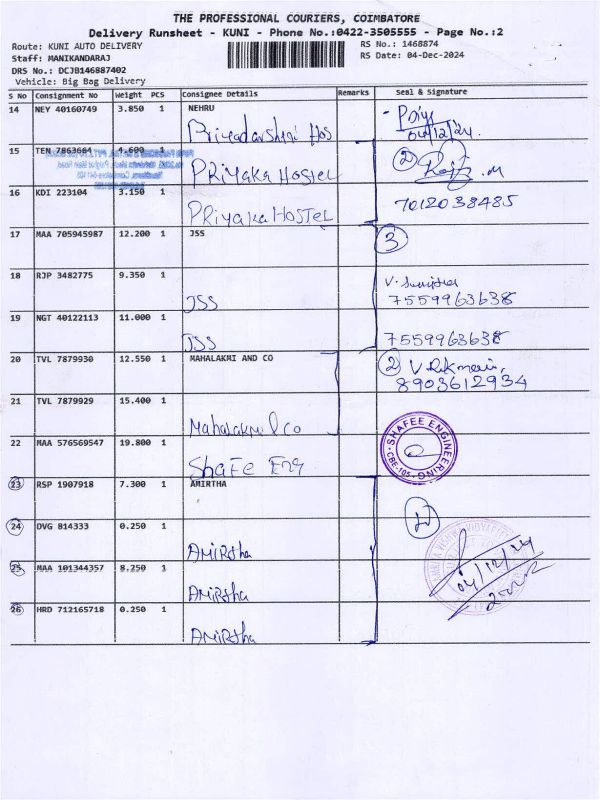 THE PROFESSIONAL COURIERS, COIMBATORE
Delivery Runsheet - KUNI - Phone No.:0422-3505555 - Page No.:2
Route: KUNI AUTO DELIVERY
RS No.: 1468874
Staff: MANIKANDARAJ
RS Date: 04-Dec-2024
DRS No.: DCJB146887402
Vehicle: Big Bag Delivery
S No Consignment No Weight PCS Consignee Details Remarks Seal & Signature
14 NEY 40160749 3.850 1 NEHRU
Priyadarshini Hos
Priya
04/12/24.
15 TEN 7863664 4.600 1
PRiyaka HOSTEL
②
16 KDI 223104 3.150 1
PRiyaka HOSTEL
7012038485
17 MAA 705945987 12.200 1 JSS
③
18 RJP 3482775 9.350 1
JSS
7559963638
19 NGT 40122113 11.000 1
JSS
7559963638
20 TVL 7879930 12.550 1 MAHALAKMI AND CO
②
8903612934
21 TVL 7879929 15.400 1
Mahalakmi & Co
22 MAA 576569547 19.800 1
Shafe Eng
SHAFEE ENGINEERING
CBE-105
23 RSP 1907918 7.300 1 AMIRTHA
24 DVG 814333 0.250 1
AMIRtha
25 MAA 101344357 8.250 1
AMIRtha
04/12/24
26 HRD 712165718 0.250 1
AMIRtha